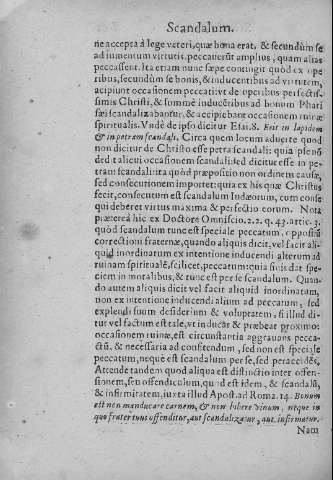 Scandalum.
ne accepta à lege vateri, quæ bona erat, & secundùm se
ad iumentum virtutis, peccauerūt amplius, quam alias
peccassent. Ita etiam nunc sæpe contingit quòd ex ope
ribus, secundùm se bonis, & inducentibus ad virtutem,
acipiunt occasionem peccati: vt de operibus perfectis-
simis Christi, & summè inductibus ad bonum Phari
sæi scandalizabantur, & accipiebant occasionem ruinæ
spiritualis. Vndè de ipso dicitur Esai. 8. Erit in lapidem
& in petram scandali. Circa quem locum aduerte quod
non dicitur de Christo esse petra scandali: quia ipse nō
det alicui occasionem scandali: sed dicitur esse in pe-
tram scandali: ita quòd præpositio non ordinem causæ,
sed consecutionem importet: quia ex his quæ Christus
fecit, consecutum est scandalum Iudæorum, cum conse
qui deberet virtus maxima & perfectio eorum. Nota
præterea hic ex Doctore Omniscio. 2. 2. q. 43. artic. 3.
quòd scandalum tunc est speciale peccatum, oppositū
correctioni fraternæ, quando aliquis dicit, vel facit ali-
quid inordinatum ex intentione inducendi alterum ad
ruinam spiritualē, scilicet, peccatum: quia finis dat spe-
ciem in moralibus, & tunc est per se scandalum. Quan-
do autem aliquis dicit vel facit aliquid inordinatum,
non ex intentione inducendi alium ad peccatum, sed
explendi suum desiderium & voluptatem, si illud di-
tur vel factum est tale, vt inducāt & præbeat proximo
occasionem ruinæ, est circunstantia aggrauans pecca-
ctū, & necessaria ad confitendum, sed non est speciale
peccatum, nequè est scandalum per se, sed per accidēs,
Attende tandem quod aliqua est distinctio inter offen-
sionem, seu offendiculum, quod idem, & scandalū,
& infirmitatem, iuxta illud Apost. ad Roma. 14. Bonum
est non manducare carnem, & non bibere vinum, neque in
quo frater tuus offenditur, aut scandalizatur, aut infirmatur.
Nam